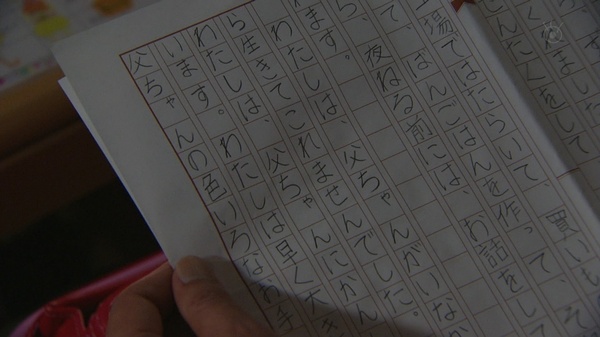 くましい
んたくをして
買いも
場ではたらいて、
ばんごはんを作って、
て、夜ねる前には、お話をし
ます。
わたしは、父ちゃんがいなか
ら生きてこれませんでした。
わたしは、父ちゃんにかん
います。わたしは早く大き
父ちゃんの色いろなわ